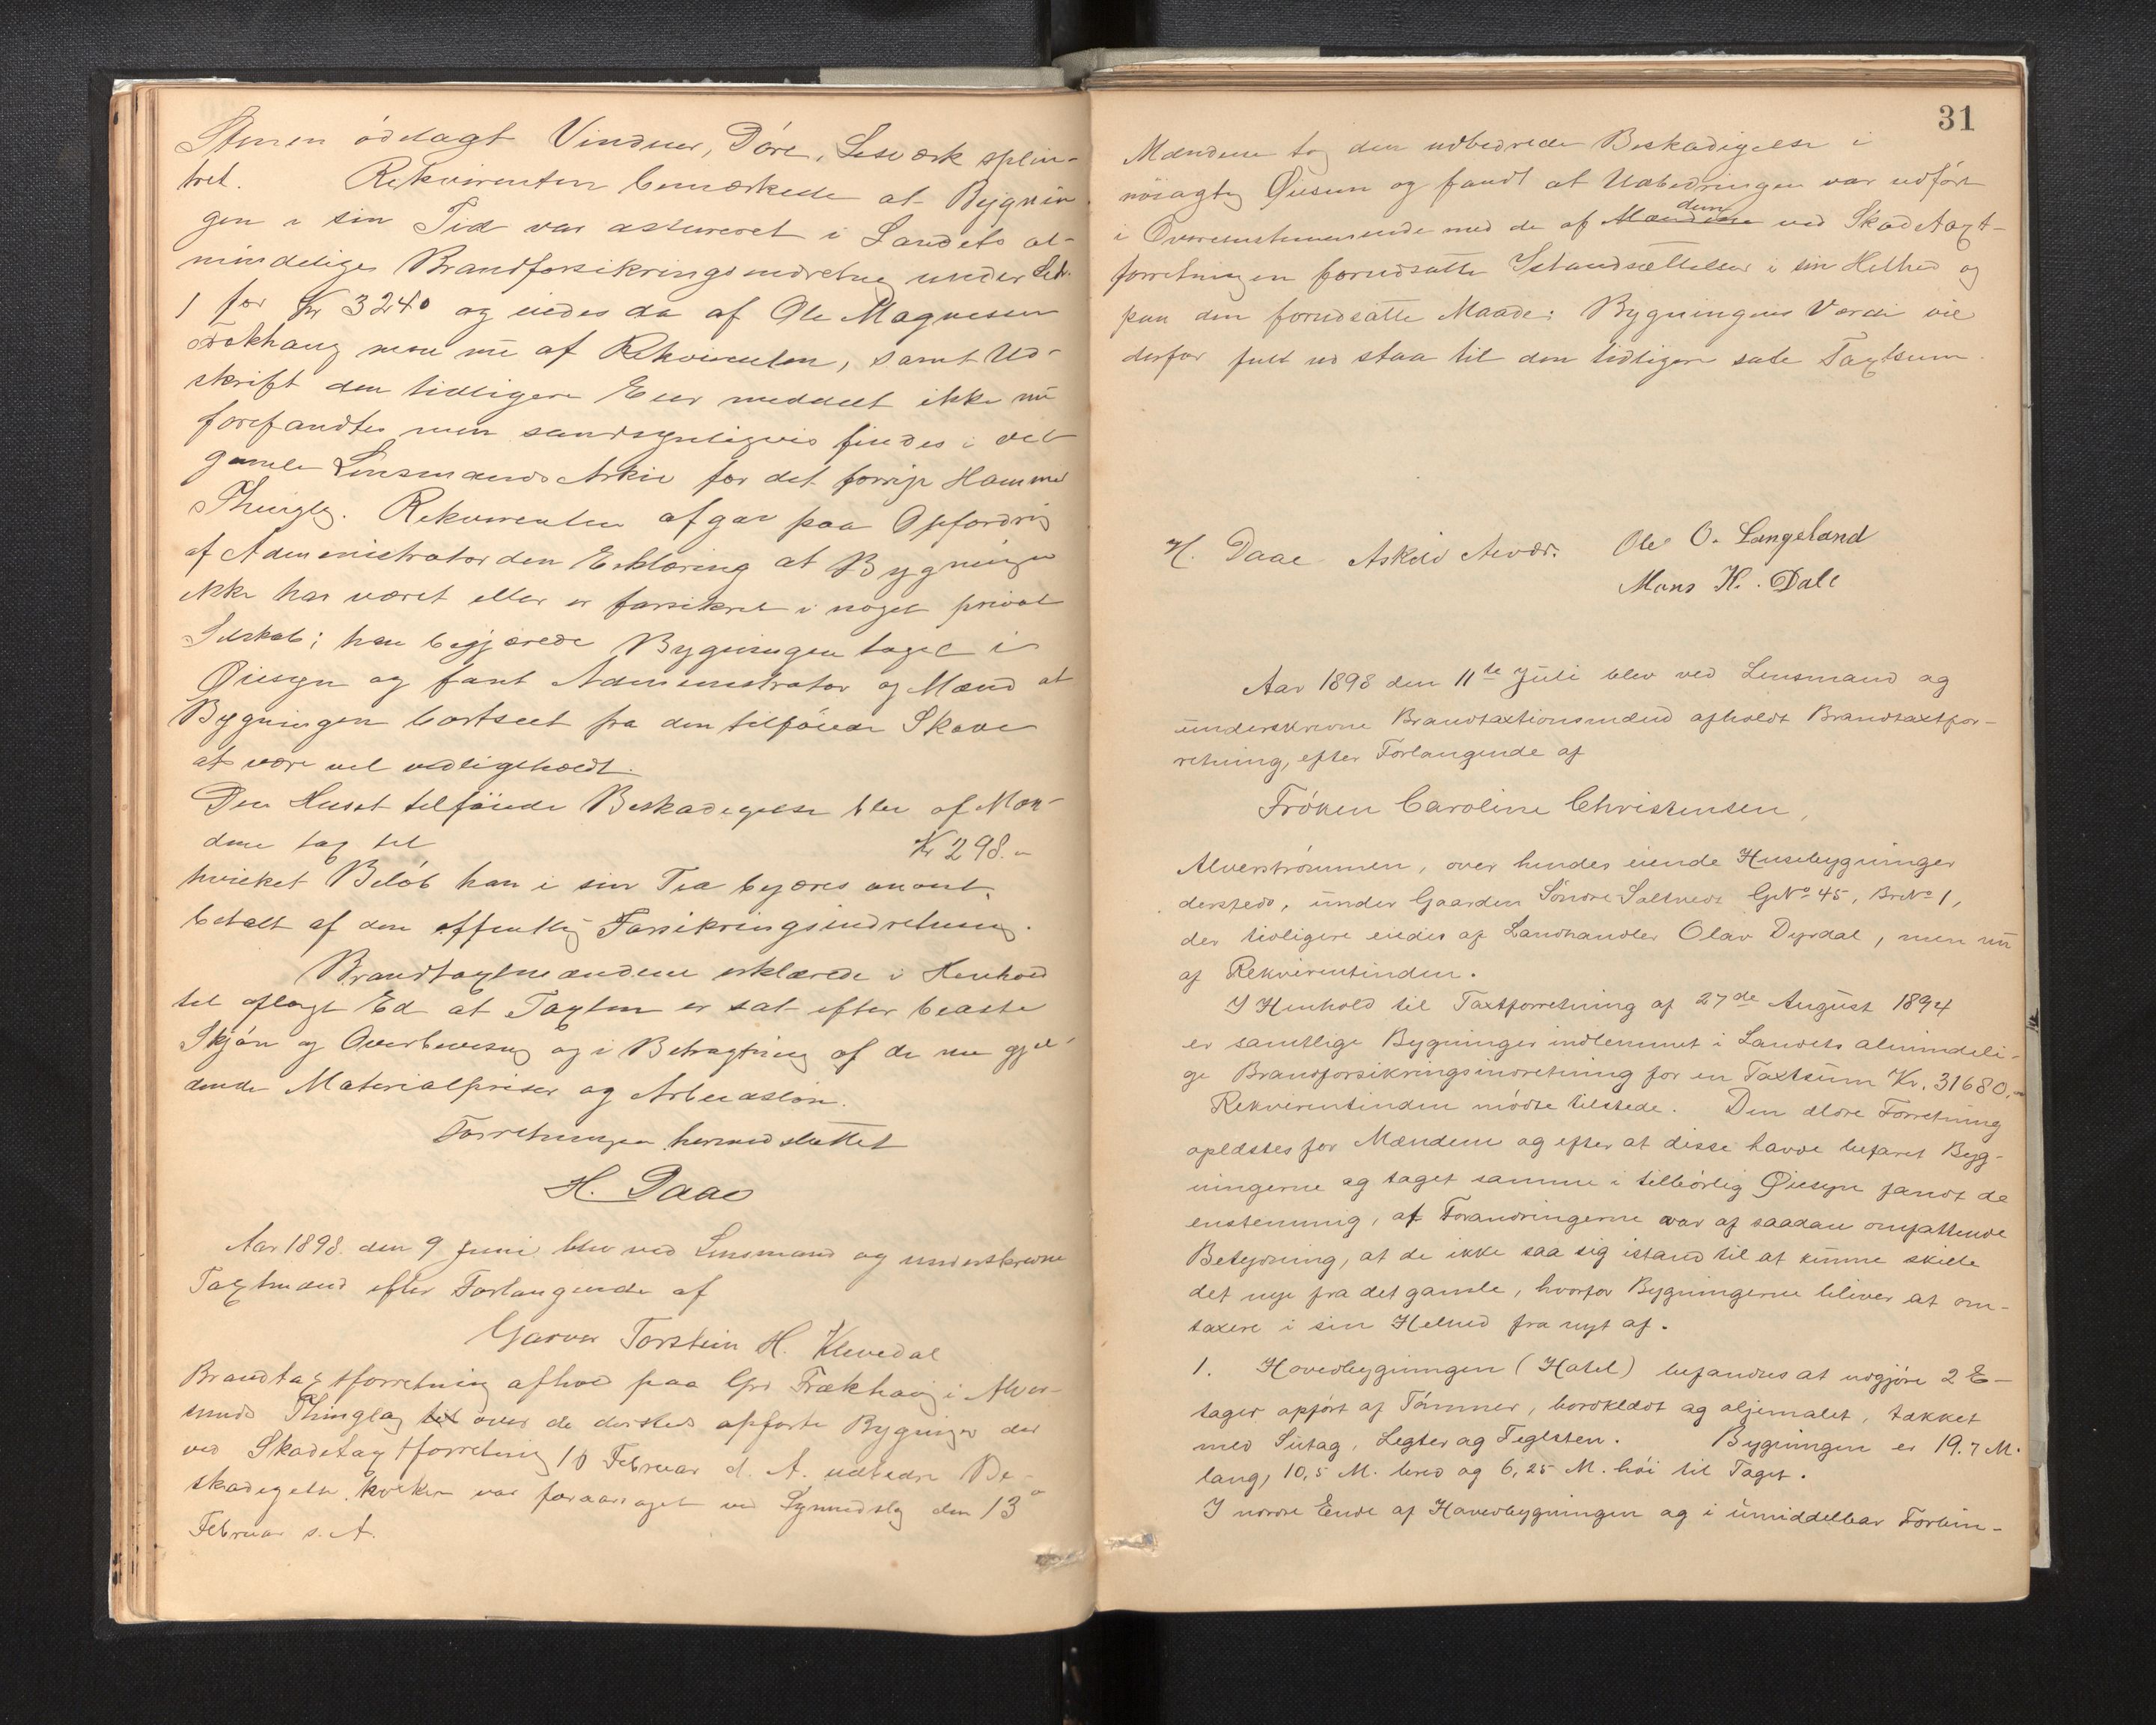 ödelagt Vinduer, Döre, Lisværk splin-
tret. Rekvirenten bemærkede at Bygnin
gen i sin Tid var assureret i Landets al-
mindelige Brandforsikringsindretng under Litr.
1 for Kr 3240 og eiedes da af Ole Magnesen
Trækhaug men nu af Rekvirenten, samt Ud-
skrift den tidligere Eier meddelt ikke nu
forefandtes men sandsynligvis findes i det
gamle Lensmands Arkiv for det forrige Hammer
Thinglg. Rekvirenten afgav paa Opfordrig
af Administrator den Erklæring at Bygningen
ikke har været eller er forsikret i noget privat
Selskab; han begjærede Bygningen taget i
Øiesyn og fant Administrator og Mænd at
Bygningen bortseet fra den tilföiede Skade
at være vel vedligeholdt.
Den Huset tilföiede Beskadigelse blev af Mæn-
dene tax til Kr 298.-
hvilket Belöb kan i sin Tid begjæres
betalt af den offentlig Forsikringsindretning.
Brandtaxtmændene erklærede i Henhold
til aflagt Ed at Taxten er sat efter bedste
Skjön og Overbevisng og i Betragtning af de nu gjel-
dende Materialpriser og Arbeidslön.
Forretningen hermed sluttet
H. Daae
Aar 1898 den 9 Juni blev ved Lensmand og underskrevne
Taxtmænd efter Forlangende af
Garver Torstein H. Klevedal
Brandtaxtforretning afhold paa Grd Trækhaug i Alver-
sunds Thinglag til over de dersteds opförte Bygninger der
ved Skadetaxtforretnig 10 Februar d. A. udbedre Be-
skadigelse, hvilken var foraarsaget ved Lynnedslg den 13
Februar s. A.
31
Mændene tog den udbedrede Beskadigelse i
nöiagtig Øiesun og fandt at Udbedringen var udfört
dem
i Overensstemmende med de af Mændene ved Skadetaxt-
forretningen forudsatte Istandsættelser i sin Helhed og
paa den forudsatte Maade; Bygningens Værdi vil
derfor fult ud staa til den tidligere satte Taxtsum.
H. Daae Askild Alvær. Ole O. Langeland
Mons K. Dale
Aar 1898 den 11te Juli blev ved Lensmand og
underskrevne Brandtaxtionsmænd afholdt Brandtaxtfor-
retning, efter Forlangende af
Fröken Caroline Christensen,
Alverströmmen, over hendes eiende Husebygninger
dersteds, under Gaarden Söndre Saltvedt GNo 45, BrNo 1,
der tidligere eiedes af Landhandler Olav Dyrdal, men nu
af Rekvirentinden.
I Henhold til Taxtforretning af 27de August 1894
er samtlige Bygninger indlemmet i Landets almindeli-
ge Brandforsikringsindretning for en Taxtsum Kr. 31680.-
Rekvirentinden mödte tilstede. Den ældre Forretning
oplæstes for Mændene og efter at disse havde befaret Byg-
ningerne og taget samme i tilbörlig Øiesyn fandt de
enstemmig, at Forandringerne var af saadan omfattende
Betydning, at de ikke saa sig istand til at kunne skille
det nye fra det gamle, hvorfor Bygningerne bliver at om-
taxere i sin Helhed fra nyt af.
1. Hovedbygningen (Hotel) befandtes at udgjöre 2 E-
tager opfört af Tömmer, bordklædt og oljemalet, tækket
med Sutag, Legter og Teglsten. Bygningen er 19.7 M.
lang, 10,5 M. bred og 6,25 M. höi til Taget.
I nordre Ende af Hovedbygningen og i umiddelbar Forbin-